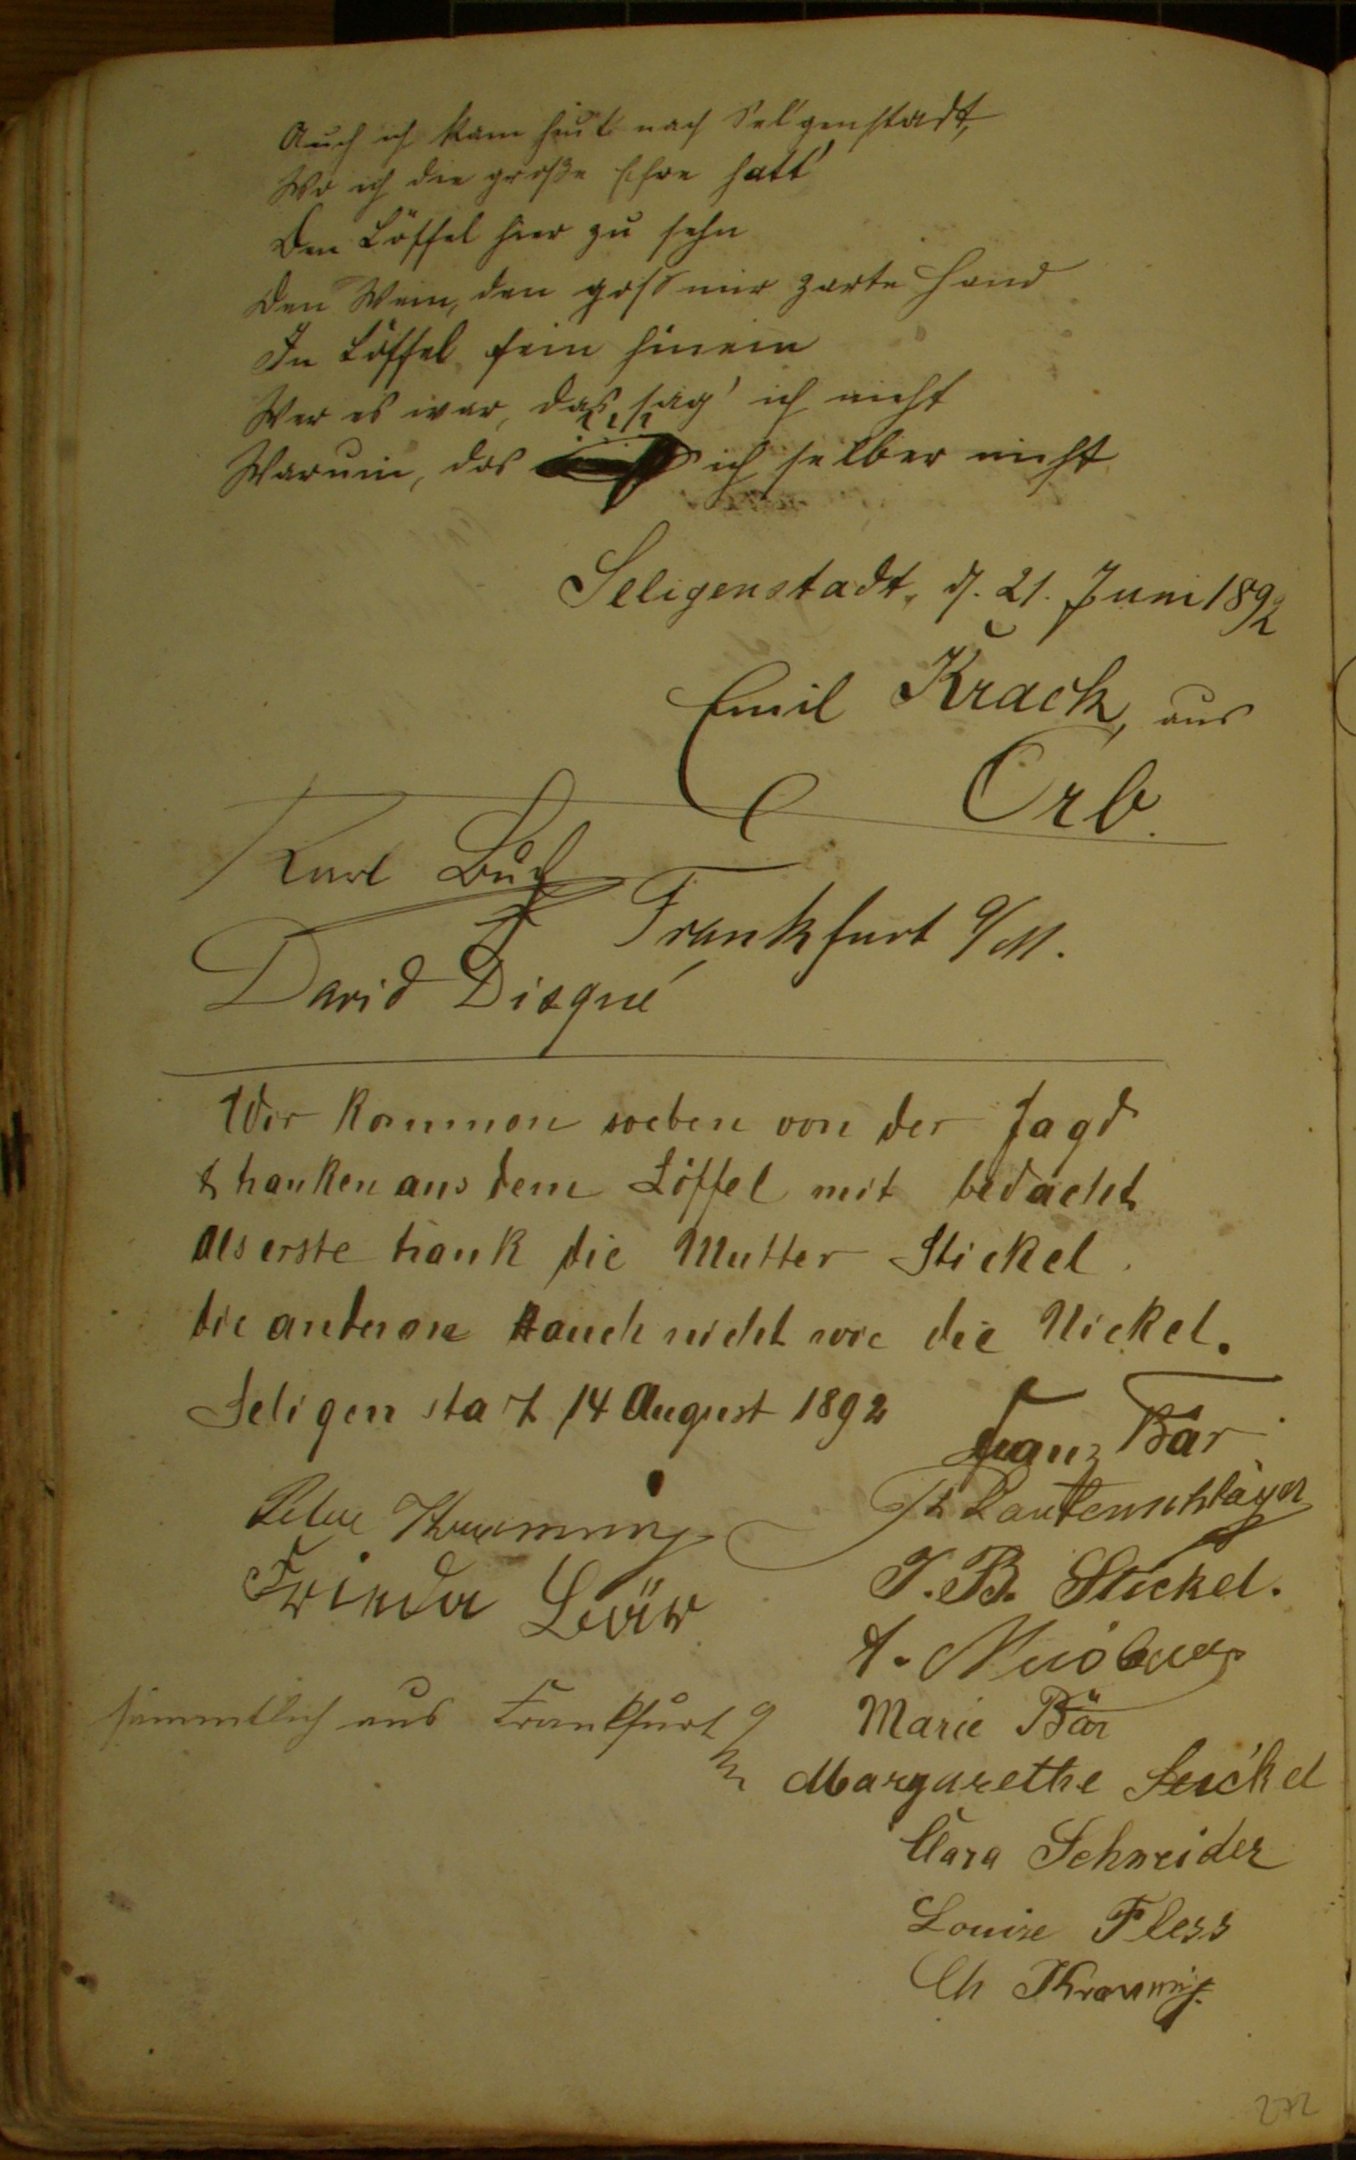 Auch ich kam heut nach Sel'genstadt,
Wo ich die große Ehre hatt'
Den Löffel hier zu sehn
Den Wein, den goss mir zarte Hand
In Löffel fein hinein
Wer es war, das sag' ich nicht
Warum, das ich selber nicht
Seligenstadt, d. 21. Juni 1892
Emil Krack, aus
Orb.
Karl Buch
Frankfurt a/M.
David Disqué
Wir kommen soeben von der Jagd
& tranken aus dem Löffel mit bedacht
als erste trank die Mutter Stickel.
die anderen auch nicht wie die Nickel.
Seligenstadt 14 August 1892
Franz Bär
Lautenschläger
Frieda Bär
J. B. Stickel.
sämmtlich aus Frankfurt a/M
Marie Bär
Margarethe Stickel
Clara Schneider
Louise Fless
Ch
272